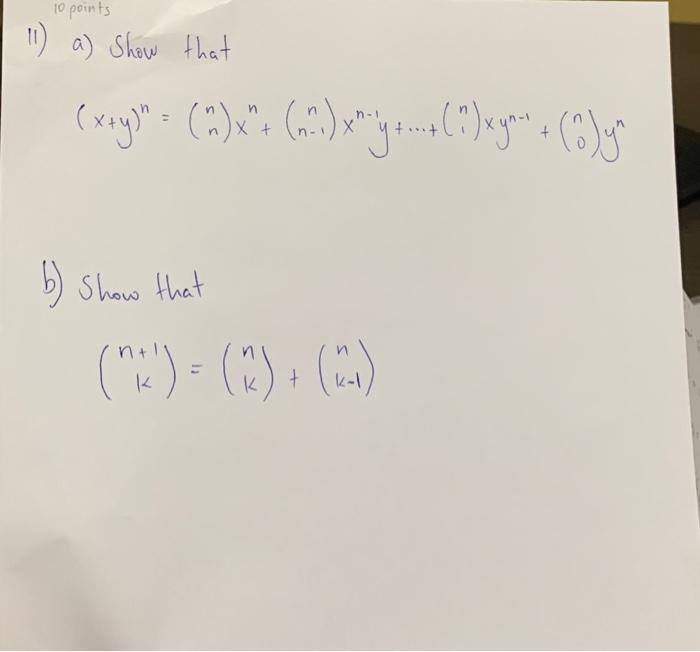 10 points
11) a) Show that
(x+y)^n = (n n)x^n + (n n-1)x^n-1 y + ... + (n 1)x y^n-1 + (n 0)y^n
b) Show that
(n+1 k) = (n k) + (n k-1)